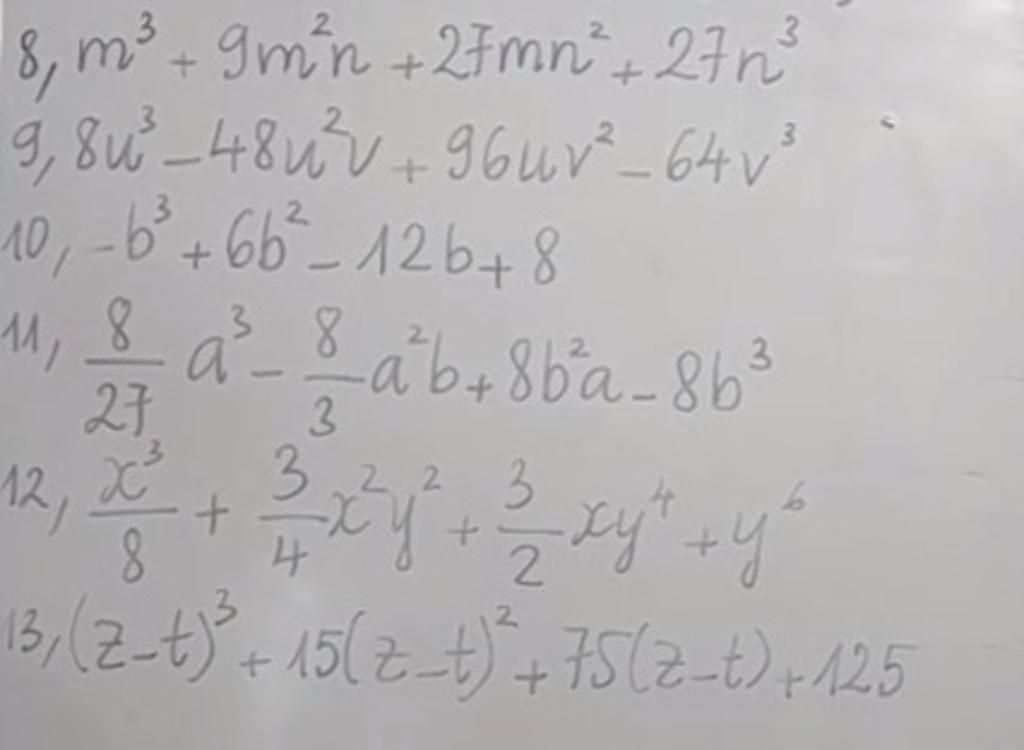 8, m³ + 9m²n + 27mn² + 27n³
9, 8u³ - 48u²v + 96uv² - 64v³
10, -b³ + 6b² - 12b + 8
11, 8/27 a³ - 8/3 a²b + 8b²a - 8b³
12, x³/8 + 3/4 x²y² + 3/2 xy⁴ + y⁶
13, (z-t)³ + 15(z-t)² + 75(z-t) + 125